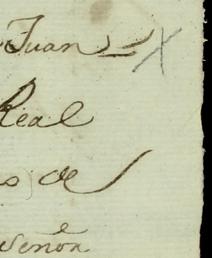 Juan
Real
s de
Señor